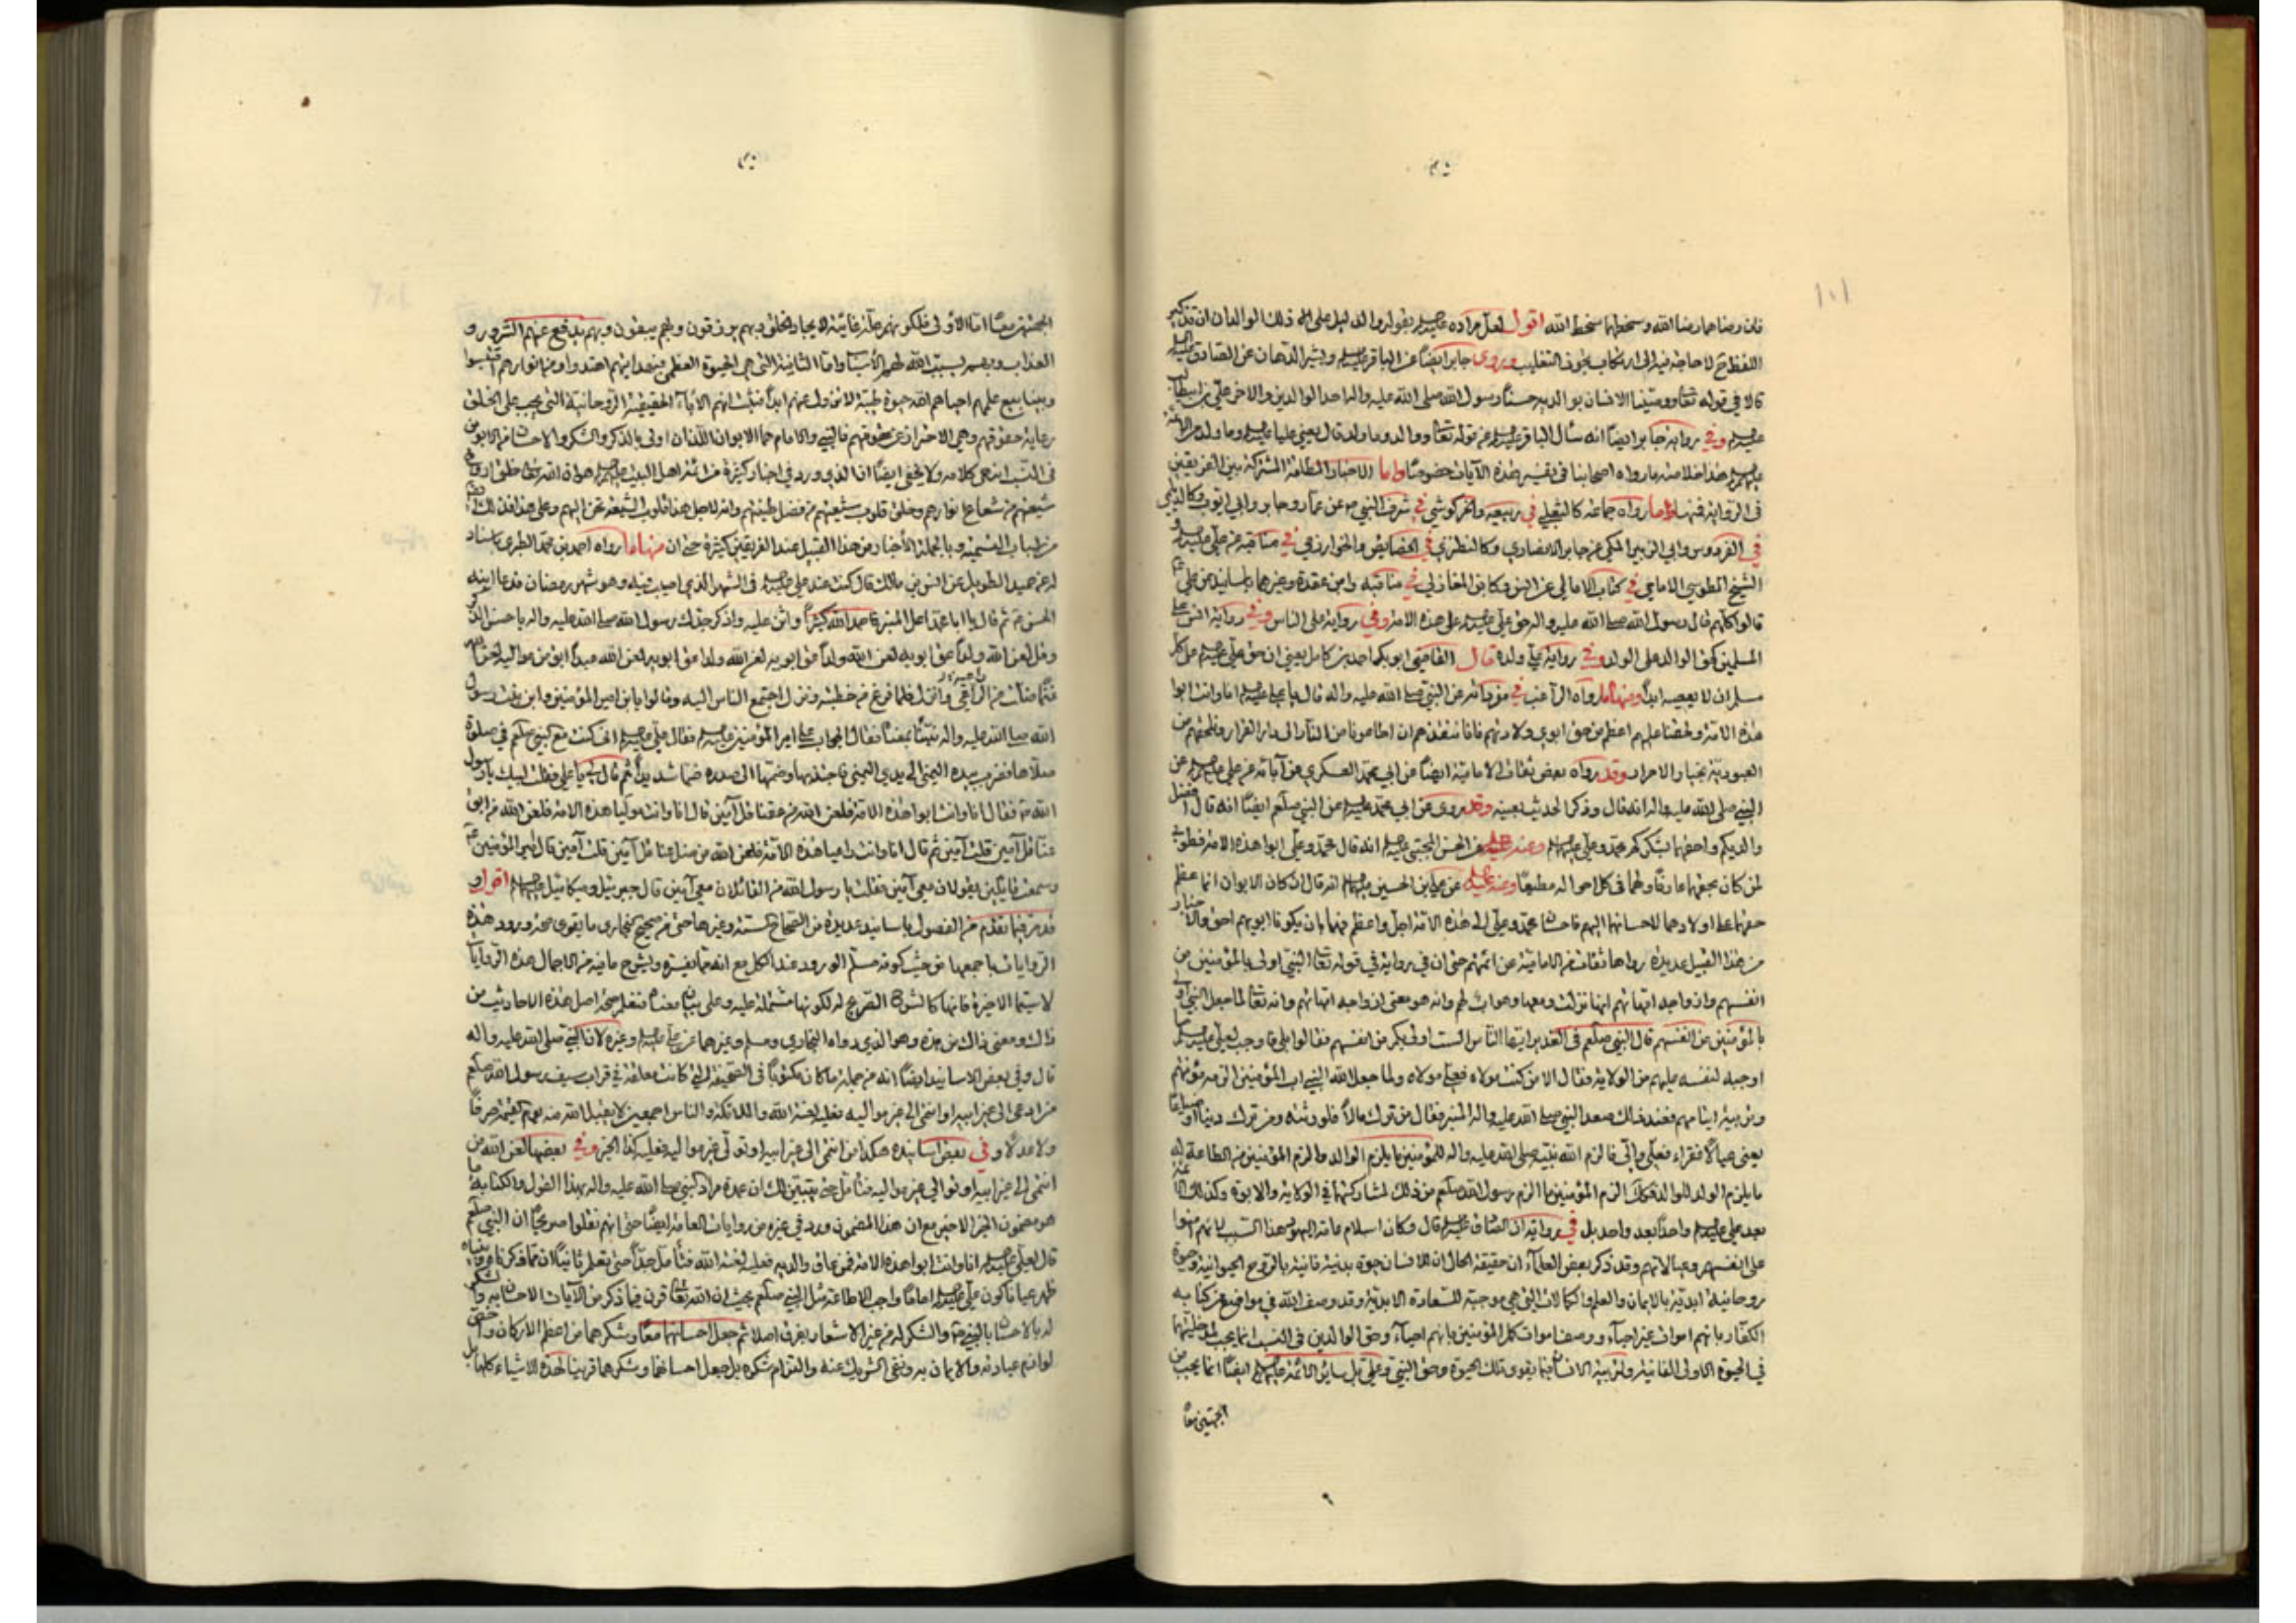 ١٠١
فان رضاهما رضا الله وسخطهما سخط الله اقول لعل مراده عليه السلام بقوله والدليل على ذلك الوالدان ان تذكير
اللفظ ح لا حاجة فيه الى ارتكاب تجوز التغليب وروى جابر ايضا عن الباقر عليه السلام وبشير الدهان عن الصادق عليه السلم
قالا في قوله تعا ووصينا الانسان بوالديه حسنا رسول الله صلى الله عليه واله احد الوالدين والاخر علي بن ابيطالب
عليه السلم وفي رواية جابر ايضا انه سأل الباقر عليه السلم عن قوله تعا ووالد وما ولد قال يعني عليا عليه السلم وما ولد من الائمة
عليهم السلم هذا خلاصة ما رواه اصحابنا في تفسير هذه الآيات خصوصا واما الاخبار المطلقة المشتركة بين الفريقين
في الرواية فمنها ما رواه جماعة كالثعلبي في ربيعه والخركوشي في شرف النبي ص عن عمار وجابر وابي ايوب وكالديلمي
في الفردوس وابي الزبير المكي عن جابر الانصاري وكالنطنزي في الخصايص والخوارزمي في مناقبه عن علي عليه السلم و
الشيخ الطوسي الامامي في كتاب الامالي عن انس وكابن المغازلي في مناقبه وابن عقدة وغيرهما باسانيد عن علي
قالوا كلهم قال رسول الله صلى الله عليه واله حق علي عليه السلم على هذه الامة وفي رواية على الناس وفي رواية انس على
المسلمين كحق الوالد على الولد وفي رواية على ولده قال القاضي ابو بكر احمد بن كامل يعني ان حق علي عليه السلم على كل
مسلم ان لا يعصيه ابدا ومنها ما رواه الراغب في مفرداته عن النبي صلى الله عليه واله قال يا علي انا وانت ابوا
هذه الامة ولحقنا عليهم اعظم من حق ابوي ولادتهم فانا ننقذهم ان اطاعونا من النار الى دار القرار ونلحقهم من
العبودية بخيار الاحرار وقد رواه بعض ثقات الامامية ايضا عن ابي محمد العسكري عن آبائه عن علي عليه السلم عن
النبي صلى الله عليه واله انه قال وذكر الحديث بعينه وقد روى عن ابي محمد عليه السلم عن النبي صلعم ايضا انه قال افضل
والديكم واحقهما بشكركم محمد وعلي عليهما السلم وعنه عليه السلم عن الحسن المجتبى عليه السلم انه قال محمد وعلي ابوا هذه الامة فطوبى
لمن كان بحقهما عارفا ولهما في كل احواله مطيعا وعنه عليه السلم عن علي بن الحسين عليهما السلم انه قال ان كان الابوان انما عظم
حقهما على اولادهما لاحسانهما اليهم فاحسان محمد وعلي الى هذه الامة اجل واعظم فهما بان يكونا ابويهم احق والاخبار
من هذا القبيل عديدة رواها ثقات من الامامية عن ائمتهم حتى ان في رواية في قوله تعا النبي اولى بالمؤمنين من
انفسهم وازواجه امهاتهم انها نزلت ومعها وهو اب لهم وانه هو معنى ازواجه امهاتهم وانه تعا لما جعل النبي اولى
بالمؤمنين من انفسهم قال النبي صلعم في الغدير ايها الناس الست اولى بكم من انفسكم فقالوا بلى فاوجب لعلي عليه السلم ما
اوجبه لنفسه عليهم من الولاية فقال الا من كنت مولاه فعلي مولاه ولما جعل الله النبي اب المؤمنين الزمه مؤنتهم
وتربية ايتامهم فعند ذلك صعد النبي صلى الله عليه واله المنبر فقال من ترك مالا فلورثته ومن ترك دينا او ضياعا
يعني عيالا فقراء فعلي والي فالزم الله نبيه صلى الله عليه واله للمؤمنين ما يلزم الوالد والزم المؤمنين من الطاعة له
ما يلزم الولد للوالد فكذلك الزم المؤمنين ما الزم رسول الله صلعم من ذلك لمشاركتهما في الولاية والابوة وكذلك الائمة
بعد علي عليه السلم واحدا بعد واحد بل في رواية ان الصادق عليه السلم قال وكان اسلام عامة اليهود بهذا السبب لانهم امنوا
على انفسهم وعيالاتهم وقد ذكر بعض العلماء ان حقيقة الحال ان للانسان حيوة بدنية فانية بالروح الحيوانية وحيوة
روحانية ابدية بالايمان والعلم والكمالات التي هي موجبة للسعادة الابدية وقد وصف الله في مواضع من كتابه
الكفار بانهم اموات غير احياء ووصف اموات كمل المؤمنين بانهم احياء وحق الوالدين في النسب انما يجب لمدخليتهما
في الحيوة الاولى الفانية ولتربية الانسان فيما يقوى تلك الحيوة وحق النبي وعلي بل سائر الائمة عليهم السلم ايضا انما يجب من
الجهتين معا
الجهتين معا اما الاولى فلكونهم علة غائية لايجاد الخلق وبهم يرزقون وبهم يبقون وبهم يدفع عنهم الشرور و
العذاب وبهم يسبب الله لهم الاسباب واما الثانية التي هي الحيوة العظمى فبهدايتهم اهتدوا ومن انوارهم اقتبسوا
وبينابيع علمهم احياهم الله حيوة طيبة لا تزول عنهم ابدا فثبت انهم الآباء الحقيقية الروحانية التي يجب على الخلق
رعاية حقوقهم وهي الاحتراز عن عقوقهم فالنبي والامام هما الابوان اللذان اولى بالذكر والشكر والاحسان من الابوين
في النسب انتهى كلامه ولا يخفى ايضا ان الذي ورد في اخبار كثيرة من ائمة اهل البيت عليهم السلم هو ان الله تعا خلق ارواح
شيعتهم من شعاع نوارهم وخلق قلوب شيعتهم من فضل طينتهم وانه لاجل هذا قلوب الشيعة تحن اليهم وعلى هذا فذلك
وبالجملة الأخبار من هذا القبيل عند الفريقين كثيرة حتى ان منها ما رواه احمد بن محمد الطبري باسناد
له عن حميد الطويل عن انس بن مالك قال كنت عند علي عليه السلم في الشهر الذي اصيب فيه وهو شهر رمضان فدعا ابنه
الحسن ع ثم قال يا ابا محمد اعل المنبر فاحمد الله كثيرا واثن عليه واذكر جدك رسول الله صلى الله عليه واله باحسن الذكر
وقل لعن الله ولدا عق ابويه لعن الله ولدا عق ابويه لعن الله ولدا عق ابويه لعن الله عبدا ابق من مواليه لعن الله
غنما ضلت عن الراعي وانزل فلما فرغ من خطبته ونزل اجتمع الناس اليه وقالوا يابن امير المؤمنين وابن بنت رسول
الله صلى الله عليه واله نبئنا بمعنا فقال الجواب على امير المؤمنين عليه السلم فقال علي عليه السلم اني كنت مع النبي صلعم في صلوة
صلاها فضرب بيده اليمنى الى يدي اليمنى فاجتذبها وضمها الى صدره ضما شديدا ثم قال لي يا علي فقلت لبيك يا رسول
الله ص فقال انا وانت ابوا هذه الامة فلعن الله من عقنا قل آمين قال انا وانت موليا هذه الامة فلعن الله من ابق
عنا قل آمين قلت آمين ثم قال انا وانت راعيا هذه الامة فلعن الله من ضل عنا قل آمين قلت آمين قال امير المؤمنين ع
وسمعت قائلين يقولان معي آمين فقلت يا رسول الله من القائلان معي آمين قال جبرئيل وميكائيل عليهما السلم اقول و
قد مر فيما تقدم من الفصول باسانيد عديدة من الصحاح الستة وغيرها حتى من صحيح البخاري ما يقوى صحة ورود هذه
الروايات باجمعها من حيث كونه مسلم الورود عند الكل مع انه مما يفسره ويشرح ما فيه من الاجمال هذه الروايات
لاسيما الاخيرة فانها كالشرح الصريح له لكونها مشتملة عليه وعلى بيان معناه فتعلم صحة اصل هذه الاحاديث من
ذاك ومعنى ذاك من هذه وهو الذي رواه البخاري ومسلم وغيرهما عن علي عليه السلم وغيره ان النبي صلى الله عليه واله
قال وفي بعض الاسانيد ايضا انه من جملة ما كان مكتوبا في الصحيفة التي كانت معلقة في قراب سيف رسول الله صلعم
من ادعى الى غير ابيه او انتمى الى غير مواليه فعليه لعنة الله والملائكة والناس اجمعين لا يقبل الله منه يوم القيمة صرفا
ولا عدلا وفي بعض اسانيده هكذا من انتمى الى غير ابيه او تولى غير مواليه فعليه كذا الخبر وفي بعضها لعن الله من
انتمى الى غير ابيه او توالى غير مواليه فتأمل حتى يتبين لك ان عمدة مراد النبي صلى الله عليه واله بهذا القول والكتابة ما
هو مضمون الخبر الاخير مع ان هذا المضمون ورد في غيره من روايات العامة ايضا حتى انهم نقلوا صريحا ان النبي صلعم
قال لعلي عليه السلم انا وانت ابوا هذه الامة فمن عاق والديه فعليه لعنة الله فتأمل جدا حتى تعلم ثانيا ان مما ذكرناه وبيناه
ظهر عيانا كون علي عليه السلم اماما واجب الاطاعة مثل النبي صلعم بحيث ان الله تعا قرن فيما ذكر من الآيات الاحسان به والشكر
له بالاحسان بالنبي ص والشكر له من غير الاشعار بفرق اصلا ثم جعل احسانهما معا وشكرهما من اعظم الاركان واخص
لوازم عبادته والايمان به ونفي الشريك عنه والتزام شكره بل جعل احسانهما وشكرهما قرينا لهذه الاشياء كلها بل